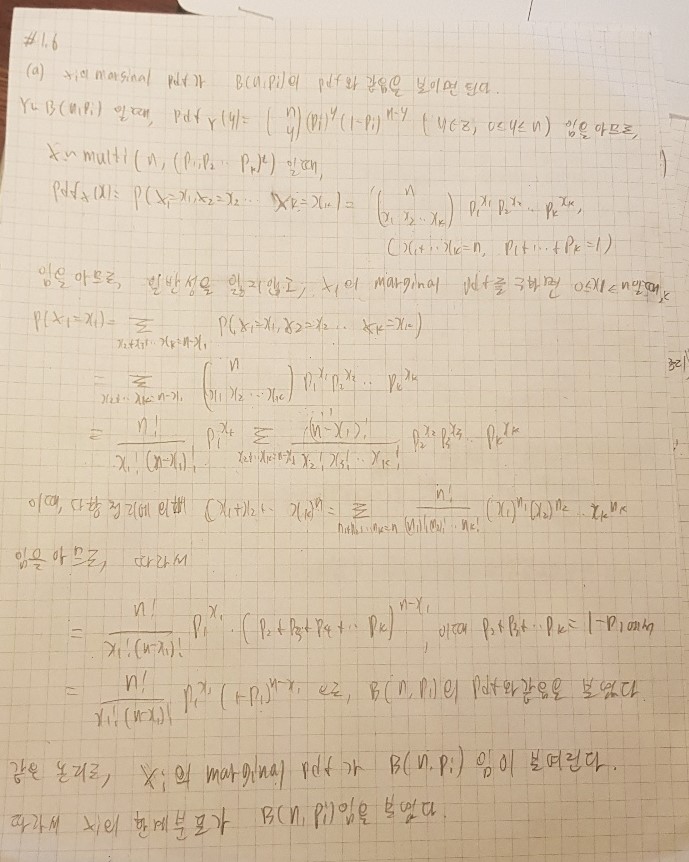 #1.6
(a) Xi의 marginal pdf가 B(n, pi)의 pdf와 같음을 보이면 된다.
Y~B(n, pi) 일때, pdf_Y(y) = (n y) (pi)^y (1-pi)^(n-y) (y∈Z, 0≤y≤n) 임을 아므로,
X~multi(n, (p1, p2 ... pk)') 일때,
pdf_X(x) = P(X1=x1, X2=x2 ... Xk=xk) = (n x1 x2 ... xk) p1^x1 p2^x2 ... pk^xk,
(x1+...xk=n, p1+...+pk=1)
임을 아므로, 일반성을 잃지않고, X1의 marginal pdf를 구하면 0≤x1≤n일때,
P(X1=x1) = Σ_{x2+x3...xk=n-x1} P(X1=x1, X2=x2 ... Xk=xk)
= Σ_{x2+...xk=n-x1} (n x1 x2 ... xk) p1^x1 p2^x2 ... pk^xk
= n!/(x1!(n-x1)!) p1^x1 Σ_{x2+...xk=n-x1} (n-x1)!/(x2! x3! ... xk!) p2^x2 p3^x3 ... pk^xk
이때, 다항정리에 의해 (x1+x2+...xk)^n = Σ_{n1+n2...nk=n} n!/(n1! n2! ... nk!) (x1)^n1 (x2)^n2 ... xk^nk
임을 아므로, 따라서
= n!/(x1!(n-x1)!) p1^x1 · (p2+p3+p4+...pk)^(n-x1), 이때 p2+p3+...pk = 1-p1이므로
= n!/(x1!(n-x1)!) p1^x1 (1-p1)^(n-x1) 으로, B(n, p1)의 pdf와 같음을 보였다.
같은 논리로, Xi의 marginal pdf가 B(n, pi) 임이 보여진다.
따라서 Xi의 주변분포가 B(n, pi)임을 보였다.